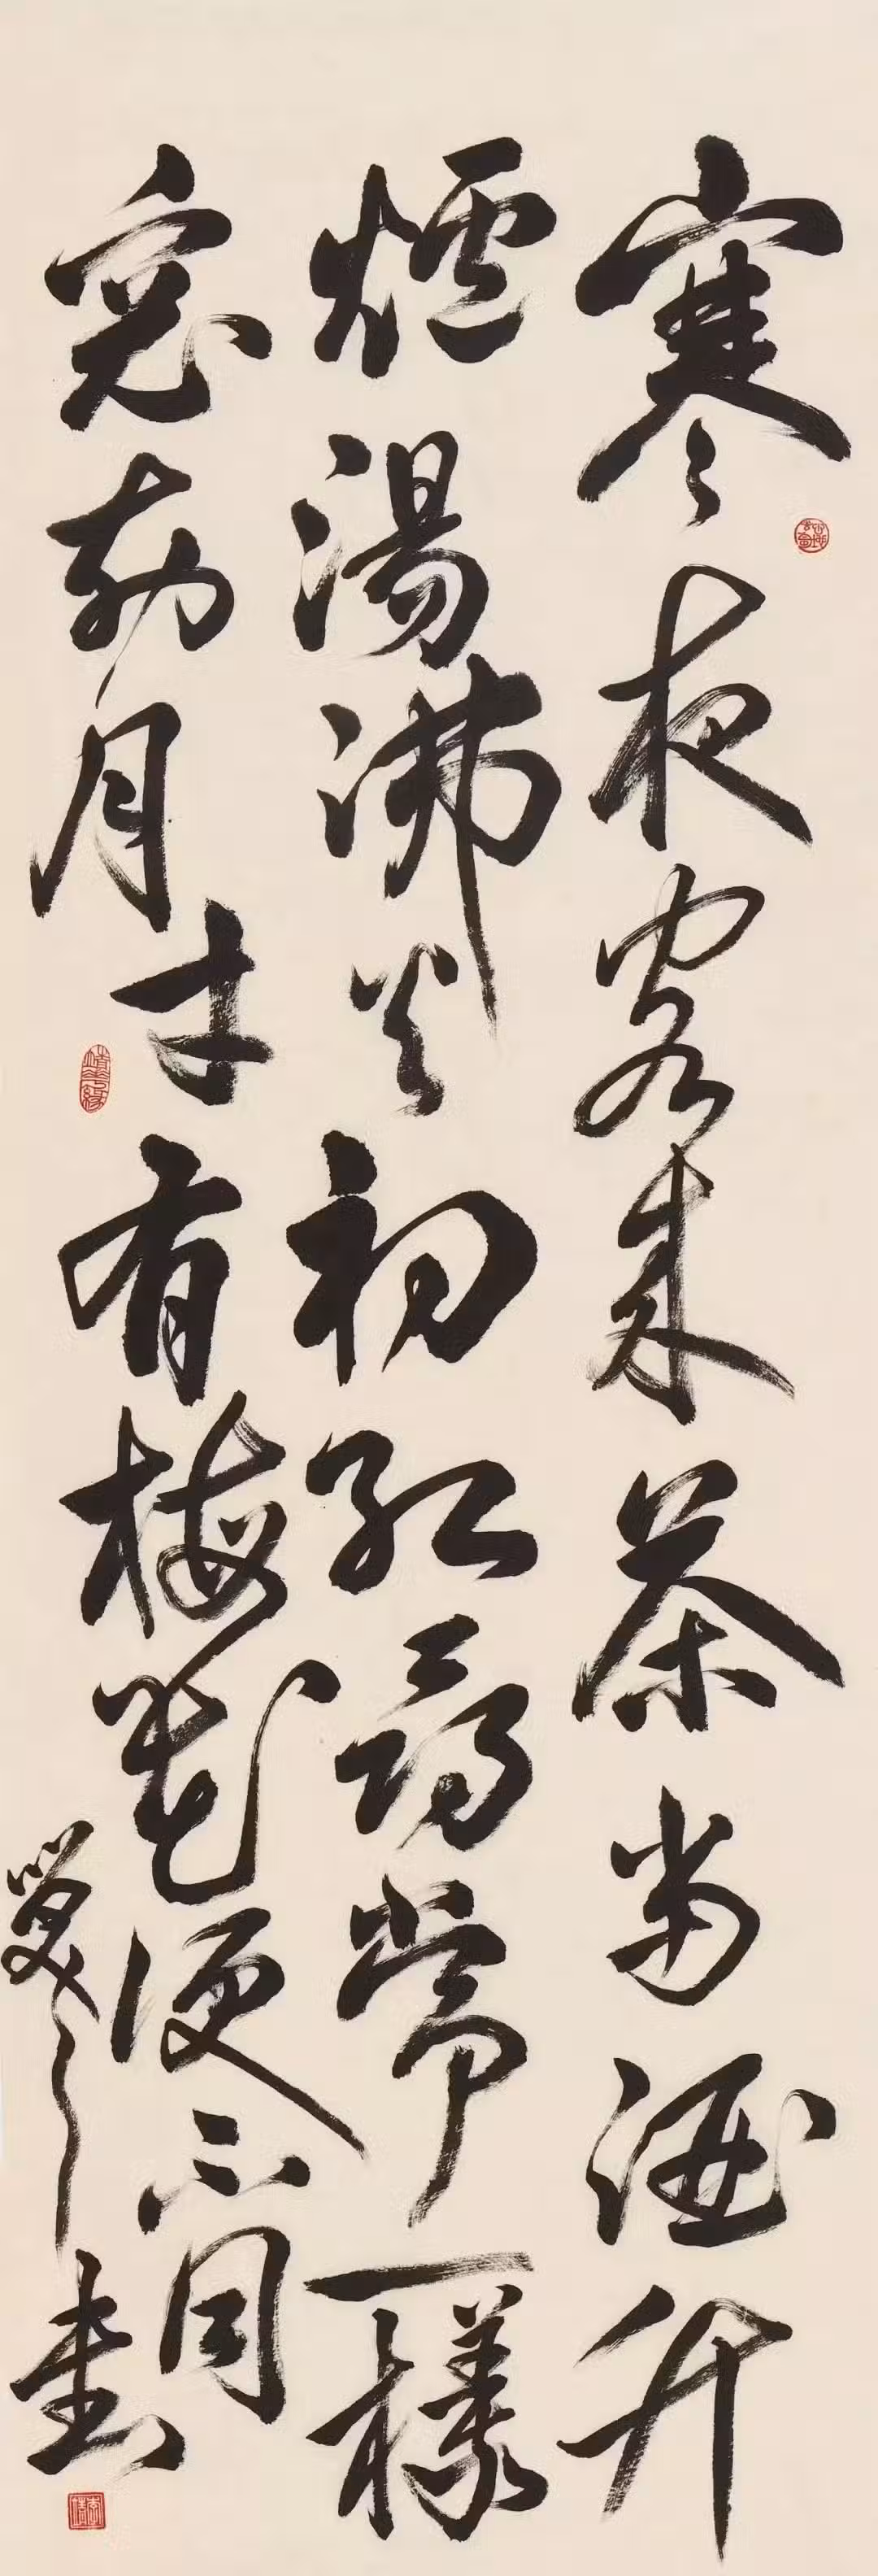 寒夜客来茶當酒竹
爐湯沸火初紅尋常一樣
窓前月才有梅花便不同
書